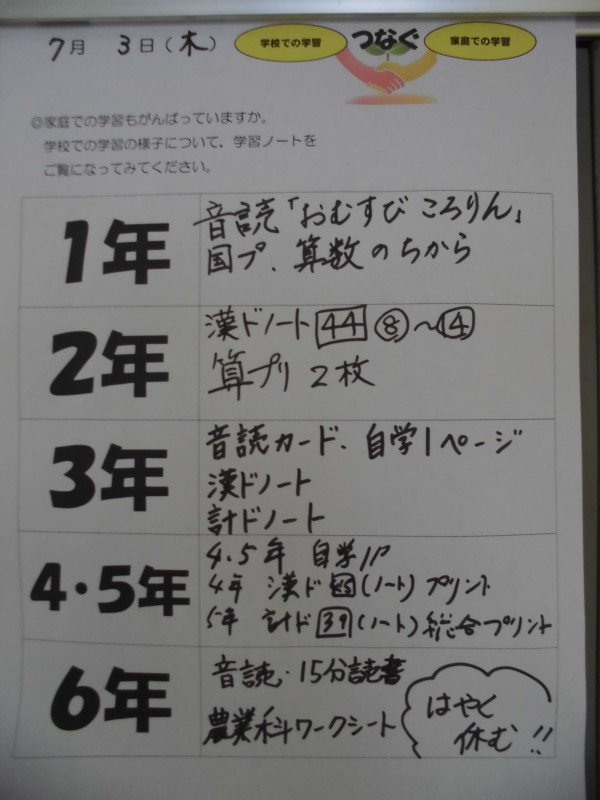 7月 3日(木)
学校での学習 つなぐ 家庭での学習
◎家庭での学習もがんばっていますか。
学校での学習の様子について、学習ノートを
ご覧になってみてください。
1年
音読「おむすび ころりん」
国プ、算数のちから
2年
漢ドノート 44 ⑧〜⑭
算プリ 2枚
3年
音読カード、自学1ページ
漢ドノート
計ドノート
4・5年
4.5年 自学1P
4年 漢ド (ノート) プリント
5年 計ド 39 (ノート) 総合プリント
6年
音読・15分読書
農業科ワークシート
はやく
休む!!